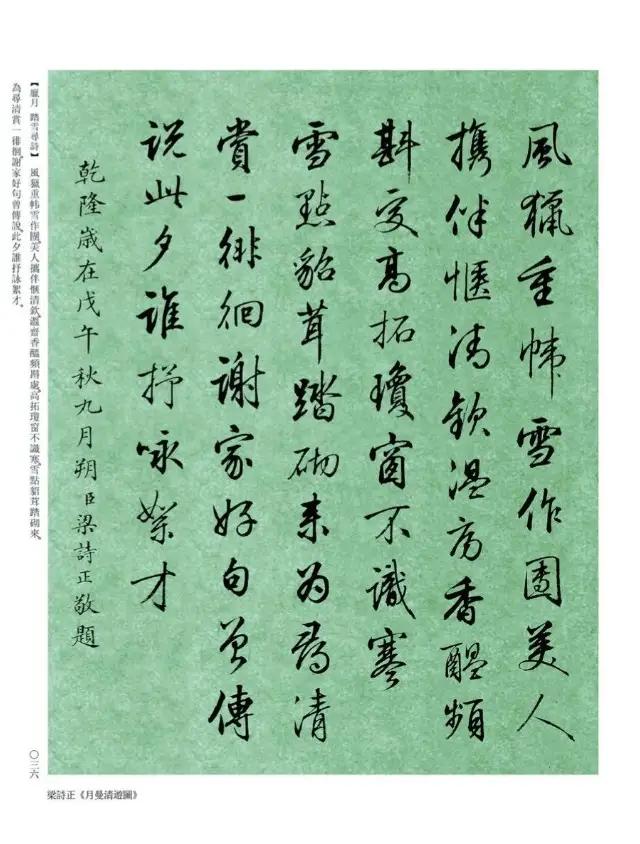 風獵重幃雪作團美人
攜伴愜清欽温房香醖頻
斟處高拓瓊窗不識寒
雪點貂茸踏砌來为尋清
賞一徘徊謝家好句曾傳
説此夕誰抒咏絮才
乾隆歲在戊午秋九月朔臣梁詩正敬題
【臘月 踏雪尋詩】 風獵重幃雪作團，美人攜伴愜清欽。溫齋香醖頻斟處，高拓瓊窗不識寒。雪點貂茸踏砌來，
為尋清賞一徘徊。謝家好句曾傳說，此夕誰抒詠絮才。
〇三六
梁詩正《月曼清遊圖》